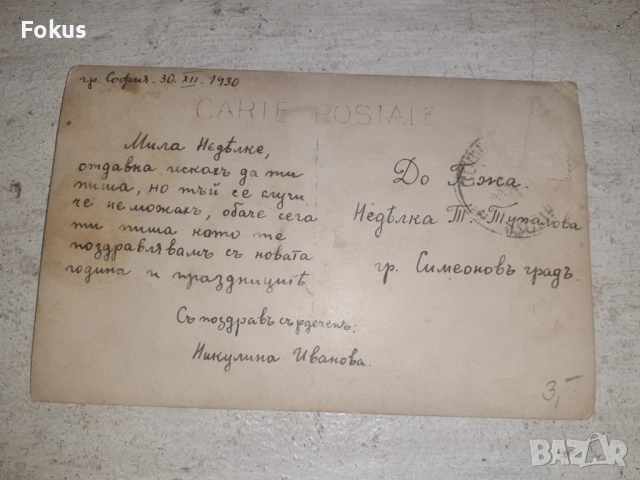 Fokus
гр. София. 30. XII. 1930
CARTE POSTALE
Мила Недѣлке,
отдавна исках да ти
пиша, но тъй се случи
че неможах, обаче сега
ти пиша като те
поздравлявамъ съ новата
година и празницитѣ
Съ поздравъ сърдеченъ:
Никулина Иванова.
До Г-жа.
Недѣлка Т. Тупалова
гр. Симеоновъ градъ.
3,-
BAZAR